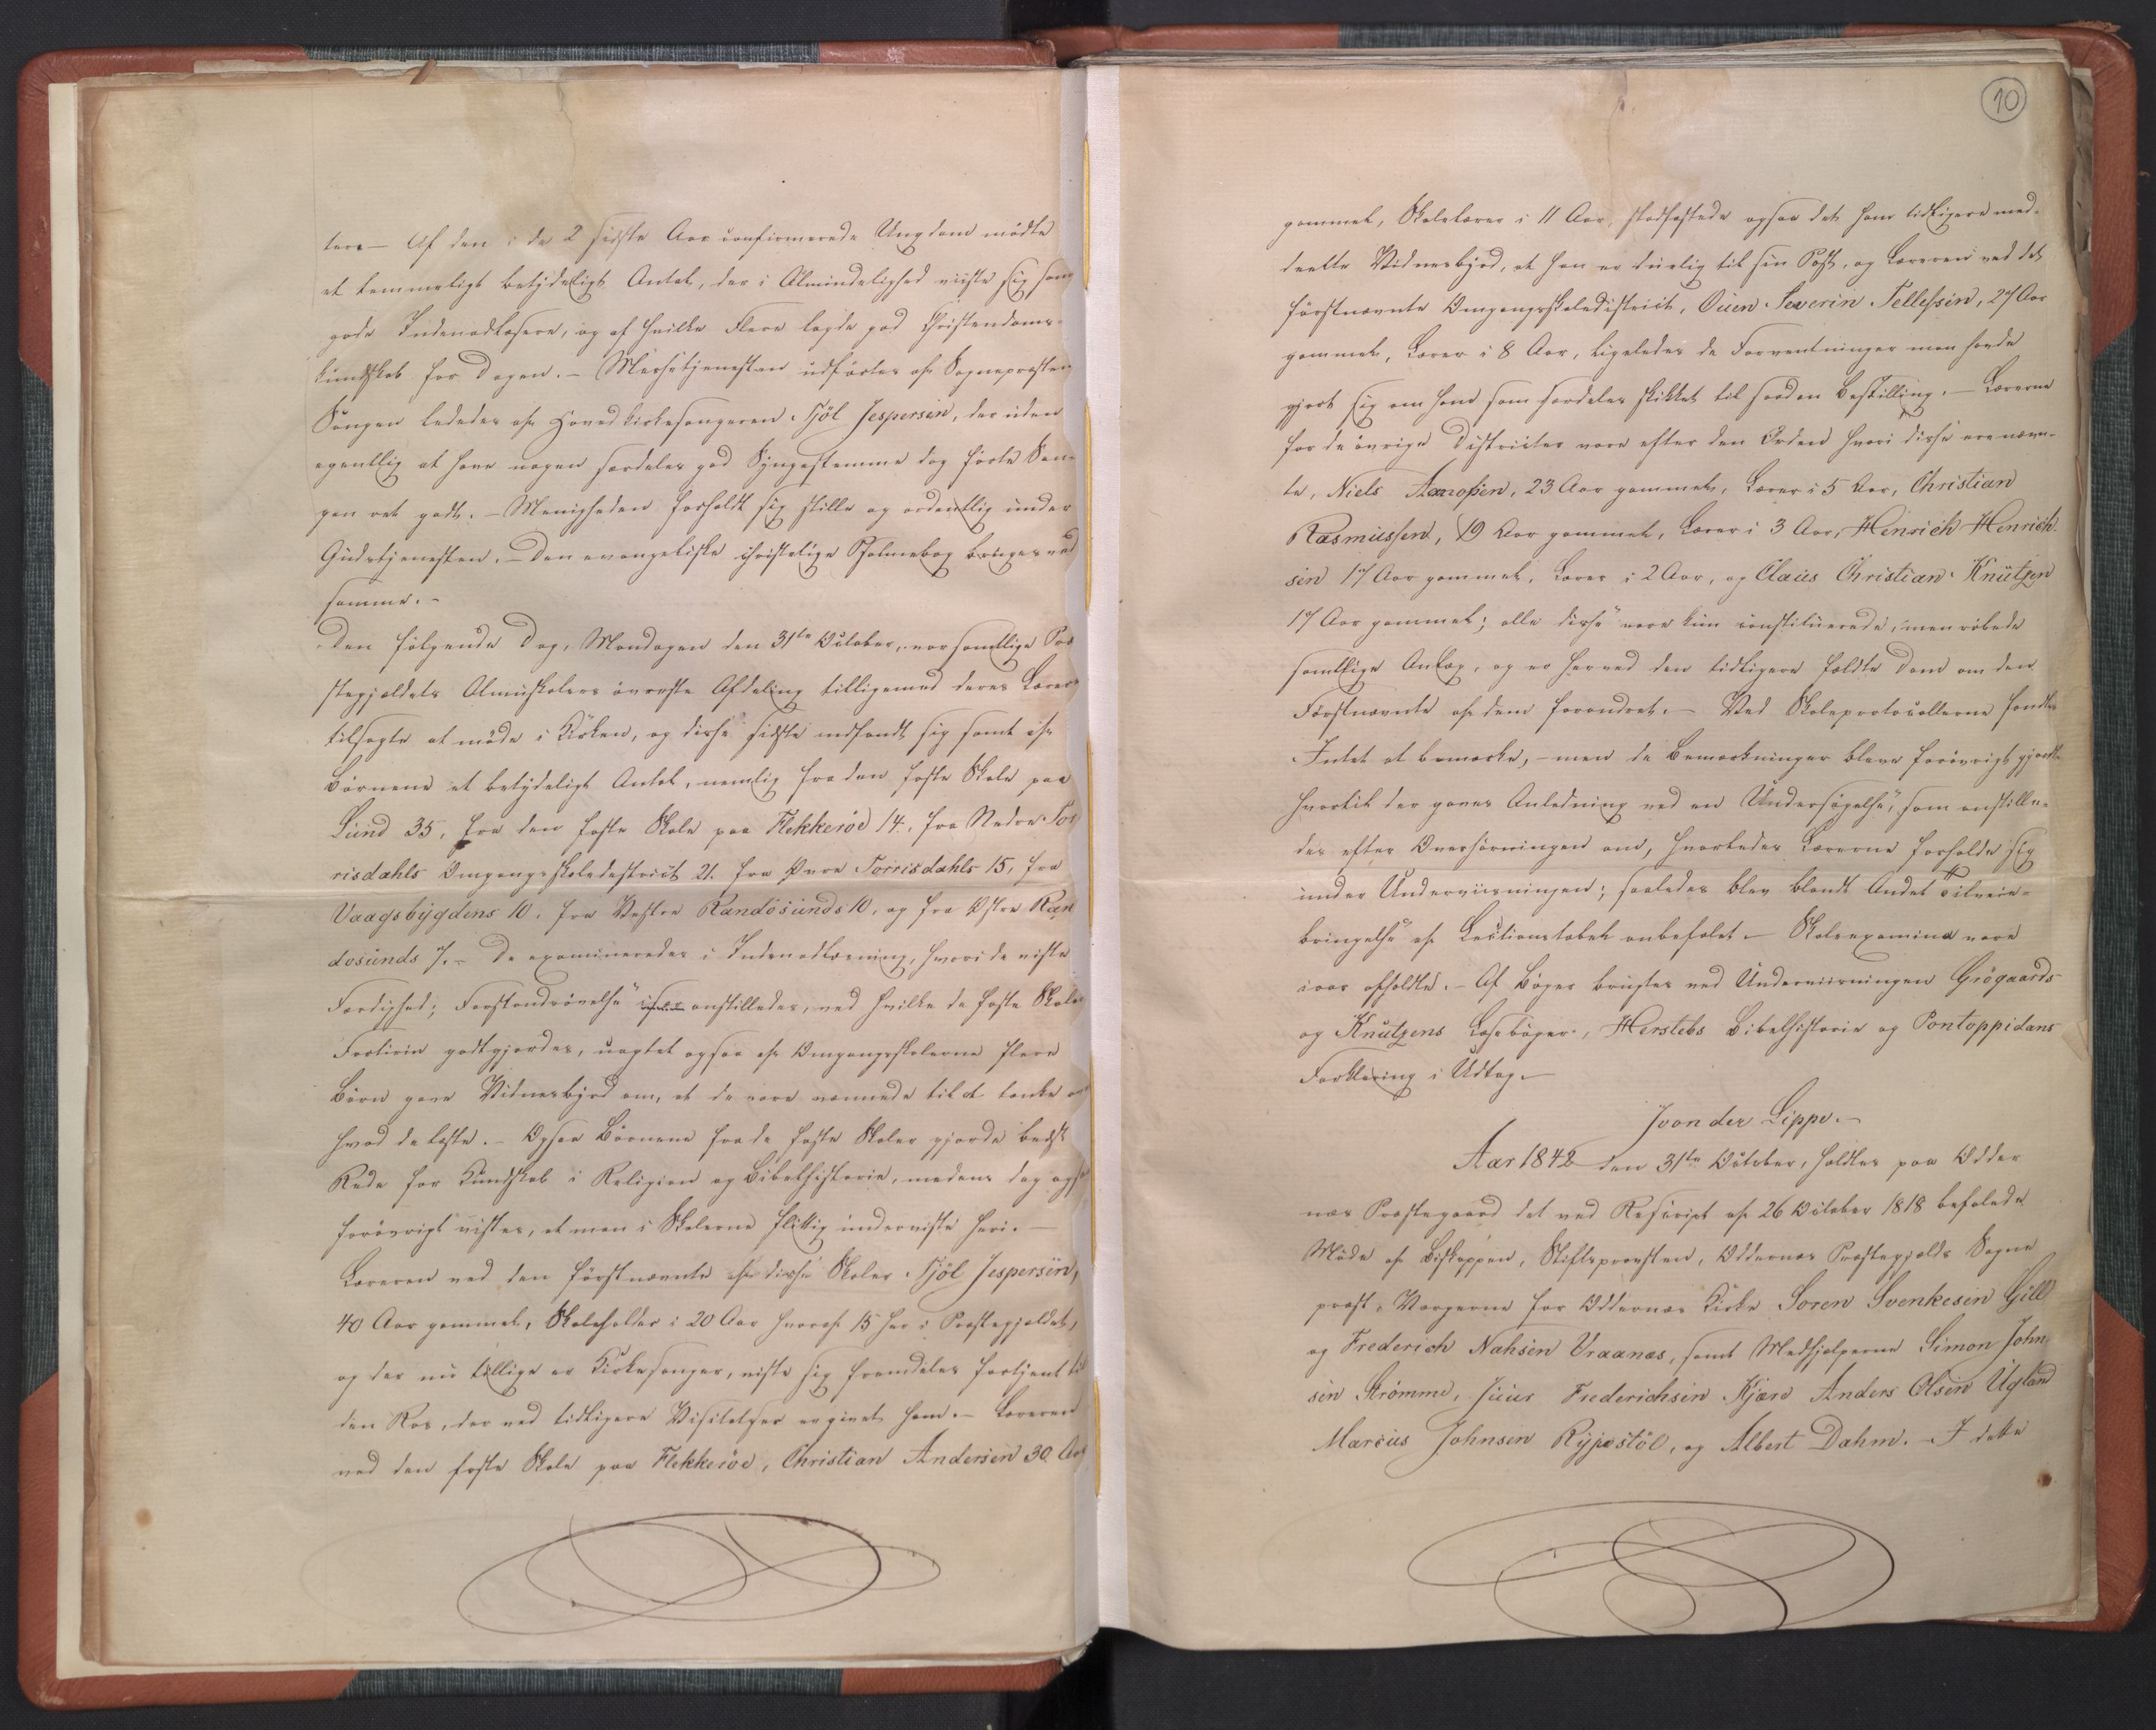 tere – Af den i de 2 sidste Aar confirmerede Ungdom mødte
et temmeligt betydeligt Antal, der i Almindelighed viiste sig som
gode Indenadlæsere, og af hvilke Flere lagde god Christendoms-
kundskab for Dagen. – Messetjenesten udførtes af Sognepræsten
Sangen lededes af Hovedkirkesangeren Tjöl Jespersen, der uden
egentlig at have nogen særdeles god Syngestemme dog førte San-
gen ret godt. – Menigheden forholdt sig stille og ordentlig under
Gudstjenesten. – Den evangeliske christelige Psalmebog bruges ved
samme. –
Den følgende Dag, Mandagen den 31te October, var samtlige Præ
stegjældets Almuskolers øverste Afdeling tilligemed deres Lærere
tilsagte at møde i Kirken, og disse sidste indfandt sig samt af
Børnene et betydeligt Antal, nemlig fra den faste Skole paa
Lund 35, fra den faste Skole paa Flekkerøe 14, fra Nedre Tor
risdahls Omgangsskoledistrict 21. fra Øvre Torrisdahls 15, fra
Vaagsbygdens 10, fra Vestre Randøsunds 10, og fra Østre Ran
døsunds 7. – De examineredes i Indenadlæsning, hvori de viste
Færdighed; Forstandsøvelse anstilledes, ved hvilke de faste Skolers
Fortrin godtgjordes, uagtet ogsaa af Omgangsskolerne flere
Børn gave Vidnesbyrd om, at de vare vænnede til at tænke over
hvad de læste. – Ogsaa Børnene fra de faste Skoler gjorde bedst
Rede for Kundskab i Religion og Bibelhistorie, medens dog ogsaa
forøvrigt vistes, at man i Skolerne flittig underviste heri. –
Læreren ved den førstnævnte af disse Skoler Tjöl Jespersen,
40 Aar gammel, Skoleholder i 20 Aar hvoraf 15 her i Præstegjældet,
og der nu tillige er Kirkesanger, viste sig fremdeles fortjent til
den Ros, der ved tidligere Visitatser er givet ham. – Læreren
ved den faste Skole paa Flekkerøe, Christian Andersen 30 Aar
10
gammel, Skolelærer i 11 Aar, stadfæstede ogsaa det ham tidligere med-
deelte Vidnesbyrd, at han er duelig til sin Post, og Læreren ved det
førstnævnte Omgangsskoledistrict, Ouen Severin Tellefsen, 27 Aar
gammel, Lærer i 8 Aar, ligeledes de Forventninger man havde
gjort sig om ham som særdeles skikket til saadan Bestilling. – Lærerne
for de øvrige Districter vare efter den Orden hvori disse ere nævn-
te, Niels Aanofsen, 23 Aar gammel, Lærer i 5 Aar, Christian
Rasmussen, 19 Aar gammel, Lærer i 3 Aar, Henrich Henrich
sen 17 Aar gammel, Lærer i 2 Aar, og Claus Christian Knutzen
17 Aar gammel; alle disse vare kun constituerede, men røbede
samtlige Anlæg, og er herved den tidligere fældte Dom om den
Førstnævnte af dem forandret. – Ved Skoleprotocollerne fandtes
Intet at bemærke, – men de Bemærkninger bleve forøvrigt gjorte
hvortil der gaves Anledning ved en Undersøgelse, som anstille-
des efter Overhøringen om, hvorledes Lærerne forholde sig
under Underviisningen; saaledes blev blandt Andet Tilveie-
bringelse af Lectionstabel anbefalet. – Skoleexamina vare
iaar afholdte. – Af Bøger brugtes ved Underviisningen Grögaards
og Knutzens Læsebøger, Herslebs Bibelhistorie og Pontoppidans
Forklaring i Udtog. –
J von der Lippe. –
Aar 1842 den 31te October, holdtes paa Odder
næs Præstegaard det ved Rescript af 26 October 1818 befalede
Møde af Biskoppen, Stiftsprovsten, Oddernæs Præstegjælds Sogne
præst, Værgerne for Oddernæs Kirke Soren Svenkesen Gill
og Frederich Nahsen Vraanæs, samt Medhjelperne Simon John
sen Strömme, Juur Frederichsen Kjære Anders Olsen Ugland
Marcus Johnsen Rypestöl, og Albert Dahm. – I dette